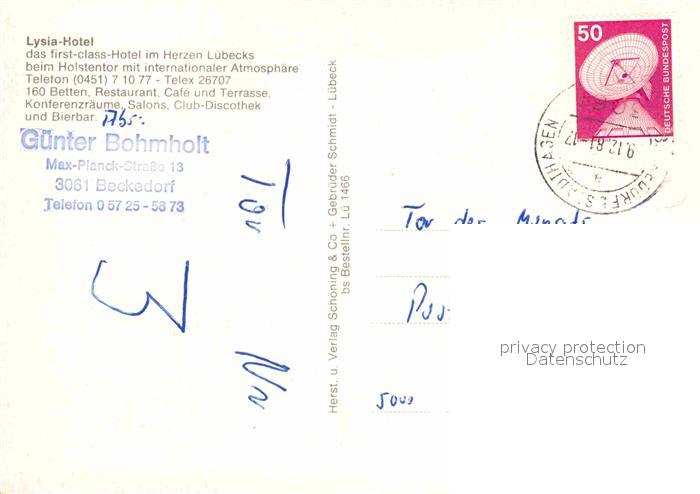 Lysia-Hotel
das first-class-Hotel im Herzen Lübecks
beim Holstentor mit internationaler Atmosphäre
Telefon (0451) 7 10 77 - Telex 26707
160 Betten, Restaurant, Café und Terrasse,
Konferenzräume, Salons, Club-Discothek
und Bierbar.
Abs.:
Günter Bohmholt
Max-Planck-Straße 13
3061 Beckedorf
Telefon 0 57 25 - 58 73
Tor
3
Nr
Herst. u. Verlag Schöning & Co + Gebrüder Schmidt - Lübeck
bs Bestellnr. Lü 1466
50
DEUTSCHE BUNDESPOST
9.12.81-17
a
Tor des Monats
5000
privacy protection
Datenschutz